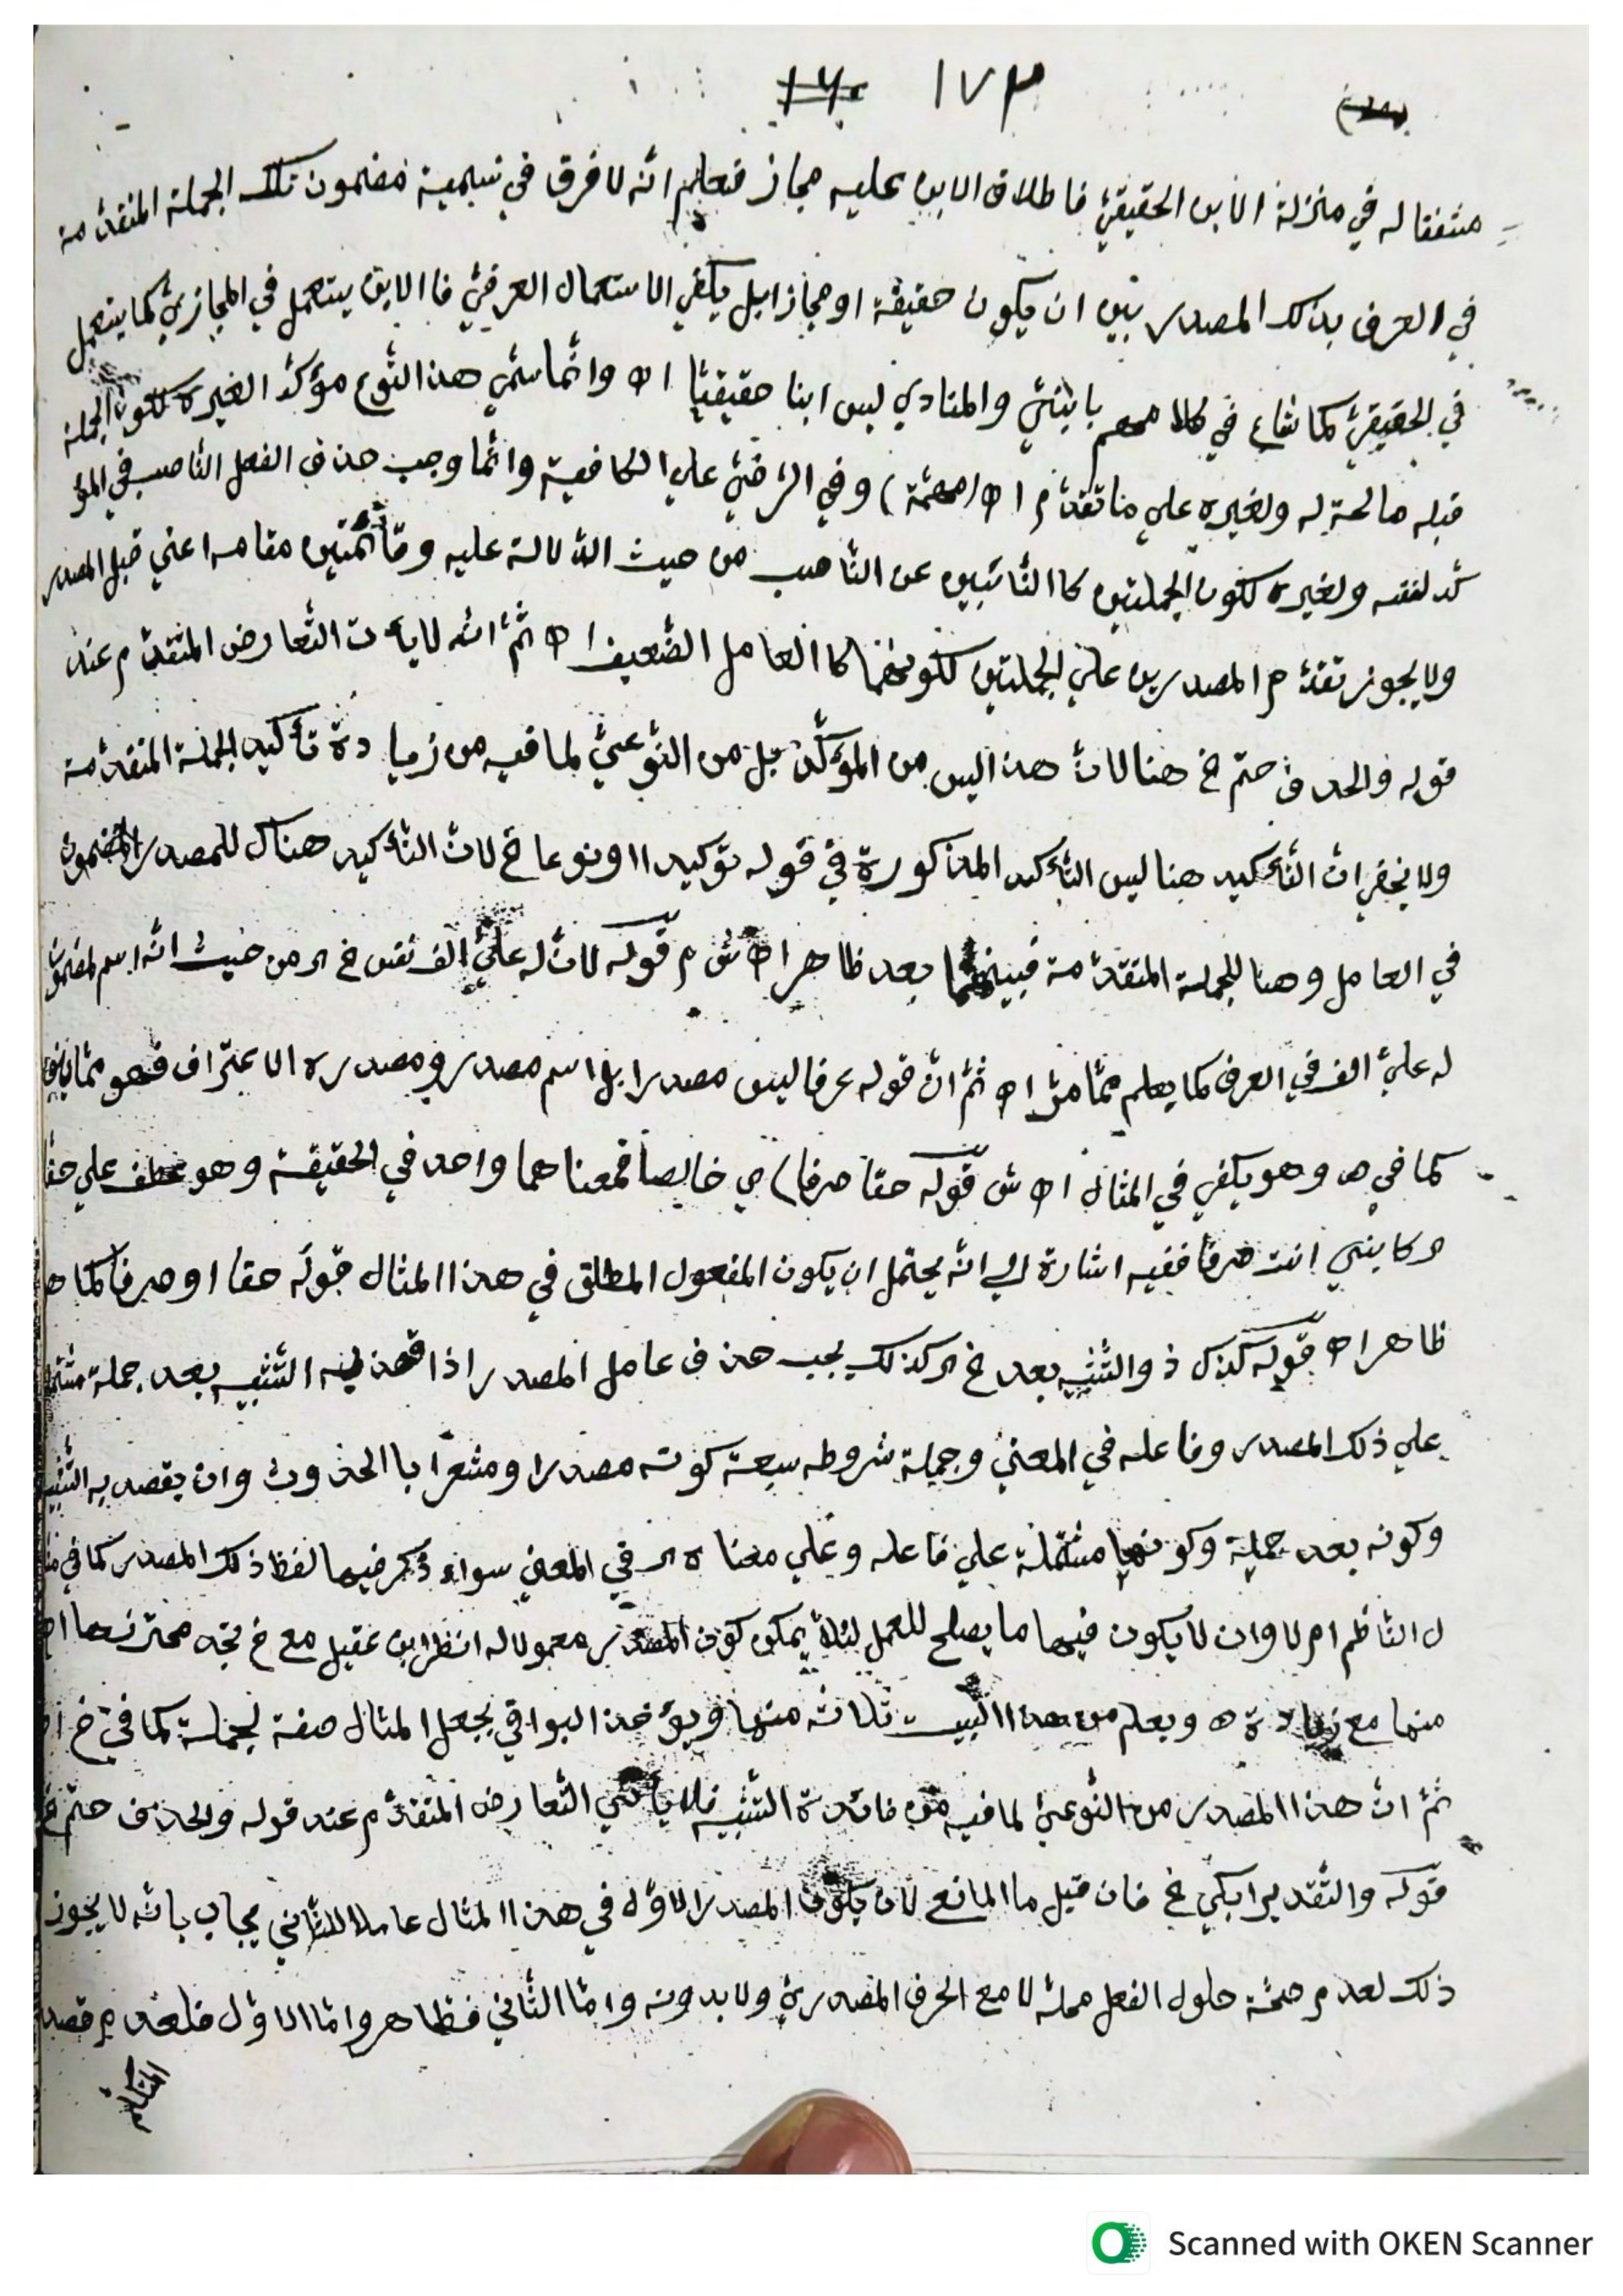 ١٧٣
متفقا له في منزلة الابن الحقيقيّ فاطلاق الابن عليه مجاز فعلم انّه لا فرق في تسمية مضمون تلك الجملة المتقدّمة
في العرف بذلك المصدر بين ان يكون حقيقة او مجازا بل يكفي الاستعمال العرفيّ فاالابن يستعمل في المجازيّ كما يستعمل
في الحقيقيّ كما شاع في كلامهم يا بنيّ والمنادي ليس ابنا حقيقيّا اه وانّما سمّي هذا النّوع مؤكّد الغيره لكون الجملة
قبله صالحة له ولغيره علي ما تقدّم اه (مهمّة) وفي الرّضيّ علي الكافية وانّما وجب حذف الفعل النّاصب في المؤ
كّد لنفسه ولغيره لكون الجملتين كاالنّائبين عن النّاصب من حيث الدّلالة عليه وقائمتين مقامه اعني قبل المصدر
ولا يجوز تقدّم المصدرين علي الجملتين لكونهما كاالعامل الضّعيف اه ثمّ انّه لا يأت التّعارض المتقدّم عند
قوله والحذف حتم خ هنا لانّ هذا ليس من المؤكّد بل من النّوعيّ لما فيه من زيادة تأكيد الجملة المتقدّمة
ولا يخفي انّ التّأكيد هنا ليس التّأكيد المذكورة في قوله توكيدا او نوعا خ لانّ التّأكيد هناك للمصدر المضمون
في العامل وهنا للجملة المتقدّمة فبينهما بعد ظاهر اه ش م قوله لانّ له عليّ الف نفس خ اي من حيث انّه اسم لمضمون
له عليّ الف في العرف كما يعلم ممّا مرّ اه ثمّ انّ قوله عرفا ليس مصدرا بل اسم مصدر ومصدره الاعتراف فهو ممّا
كما في ه وهو يكفي في المثال اه ش قوله حقا صرفا) ي خالصا فمعناهما واحد في الحقيقة وهو عطف علي حقا
اي كابني انت صرفا ففيه اشارة الي انّه يحتمل ان يكون المفعول المطلق في هذا المثال قوله حقا او صرفا كما
ظاهر اه قوله كذك ذو التّشبيه بعد خ اي كذلك يجب حذف عامل المصدر اذا قصد به التّشبيه بعد جملة
علي ذلك المصدر وفاعله في المعنيّ وجملة شروطه سبعة كونه مصدرا ومشعرا باالحدوث وان يقصد به التّشبيه
وكونه بعد جملة وكونها مشتملة علي فاعله وعلي معناه اي في المعني سواء ذكر فيها لفظ ذلك المصدر كما في
ل النّاظم ام لا وان لا يكون فيها ما يصلح للعمل لئلا يمكن كون المصدر معمولا له انظر ابن عقيل مع خ تجد محترزها
منها مع زيادة ه ويعلم من هذا البيت ثلاثة منها ويؤخذ البواقي بجعل المثال صفة لجملة كما في خ
ثمّ انّ هذا المصدر من النّوعيّ لما فيه من فائدة التّشبيه فلا يأتي التّعارض المتقدّم عند قوله والحذف حتم خ
قوله والتّقدير ابكي خ فان قيل ما المانع لان يكون المصدر الاوّل في هذا المثال عاملا للثّاني يجاب بانّه لا يجوز
ذلك لعدم صحّة حلول الفعل محلّه لا مع الحرف المصدريّ ولا بدونه وامّا الثّاني فظاهر وامّا الاوّل فلعدم قصد
المتكلّم
Scanned with OKEN Scanner